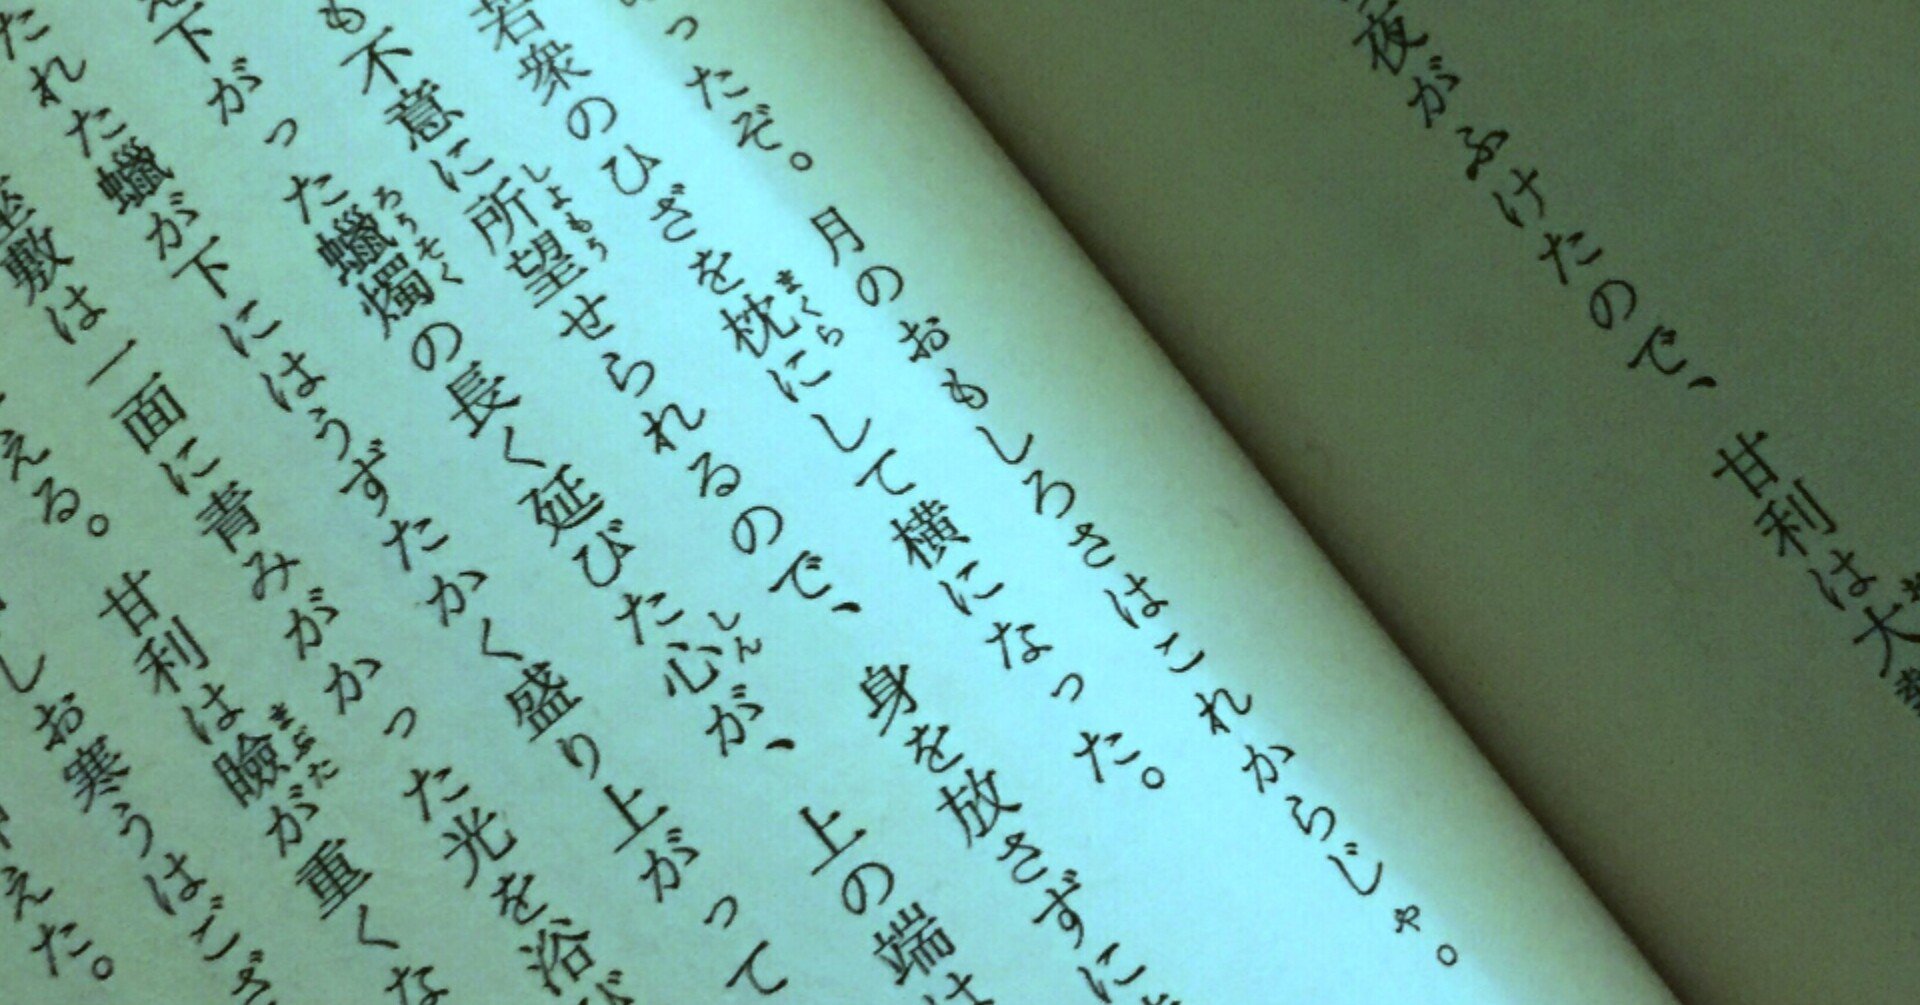 夜がふけたので、甘利は大
ったぞ。月のおもしろさはこれからじゃ。
若衆のひざを枕にして横になった。
も不意に所望せられるので、身を放さずに
下がった蠟燭の長く延びた心が、上の端は
たれた蠟が下にはうずたかく盛り上がって
座敷は一面に青みがかった光を浴び
える。甘利は瞼が重くな
しお寒うはござ
えた。